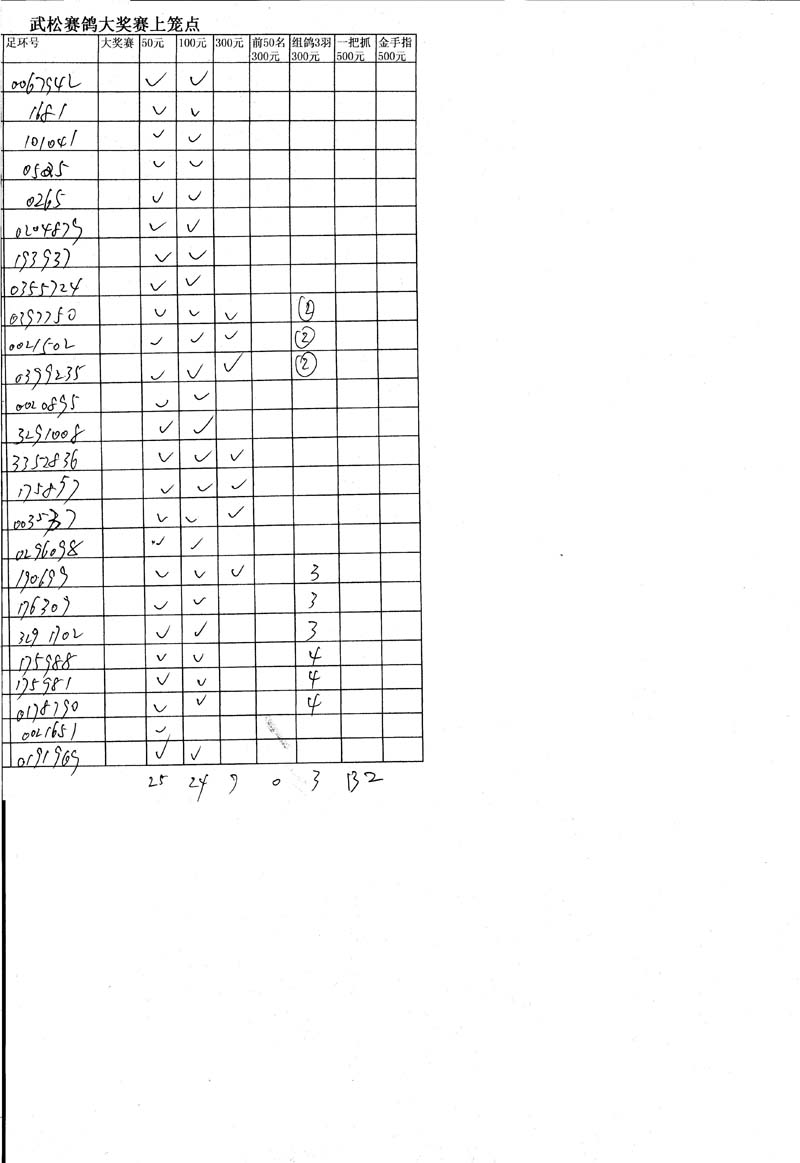 武松赛鸽大奖赛上笼点
足环号 大奖赛 50元 100元 300元 前50名300元 组鸽3羽300元 一把抓500元 金手指500元
0067942 ✓ ✓
1681 ✓ ✓
101041 ✓ ✓
✓ ✓
0265 ✓ ✓
0204879 ✓ ✓
193937 ✓ ✓
0355724 ✓ ✓
0397750 ✓ ✓ ✓ ②
0021502 ✓ ✓ ✓ ②
0399235 ✓ ✓ ✓ ②
0020895 ✓ ✓
3291008 ✓ ✓
3352836 ✓ ✓ ✓
175897 ✓ ✓ ✓
✓ ✓ ✓
0296098 ✓ ✓
190699 ✓ ✓ ✓ 3
176309 ✓ ✓ 3
3291702 ✓ ✓ 3
175988 ✓ ✓ 4
175981 ✓ ✓ 4
0178790 ✓ ✓ 4
0021651 ✓
0191969 ✓ ✓
25 24 7 0 3 132